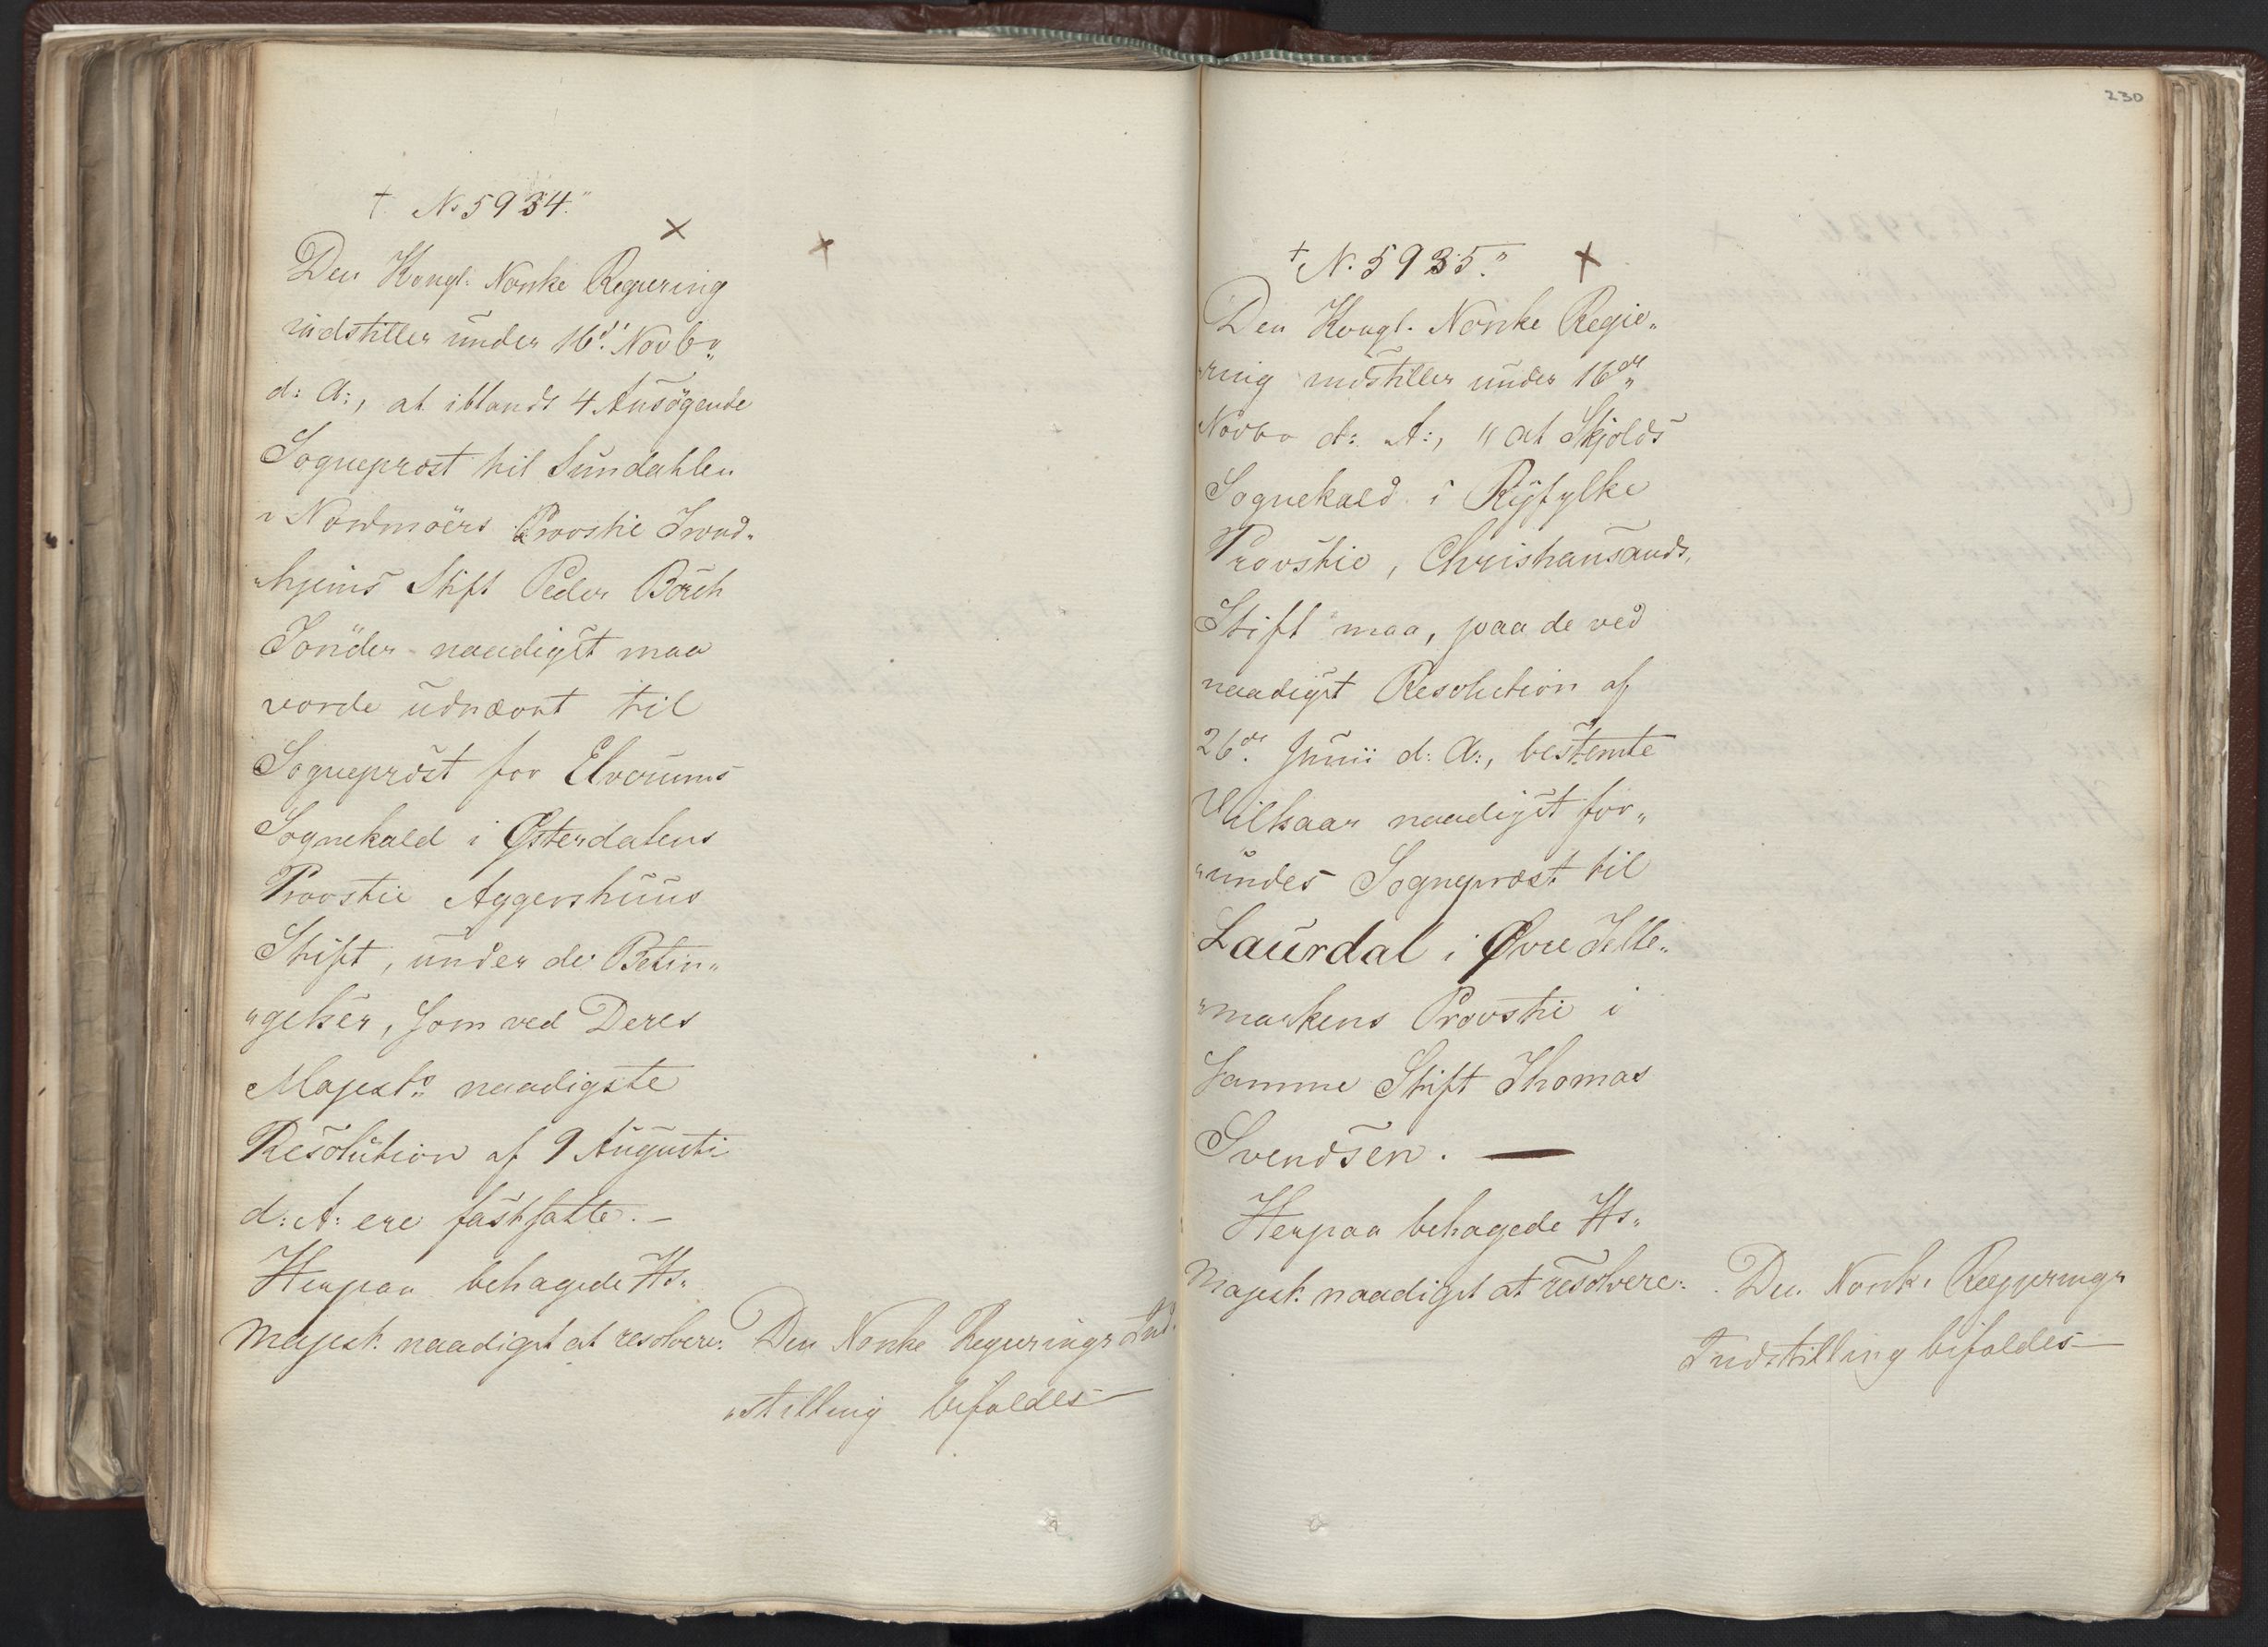 † No 5934."
×
×
Den Kongl: Norske Regiering
indstiller under 16d: Novbr„
d: A:, at iblandt 4 Ansögende
Sogneprest til Sundahlen
i Nordmöers Provstie Trond„
„hjems Stift Peder Borch
Tönder naadigst maa
vorde udnævnt til
Sogneprest for Elverums
Sognekald i Østerdalens
Provstie Aggershuus
Stift, under de Betin„
„gelser, som ved Deres
Majests: naadigste
Resolution af 9 Augusti
d: A: ere fastsatte. —
Herpaa behagede Hs„
Majest: naadigst at resolvere: Den Norske Regierings Ind„
„stilling bifaldes —
230
† N. 5935." ×
Den Kongl. Norske Regie„
„ring indstiller under 16de„
Novbr d: A:, „at Skjolds
Sognekald i Ryfylke
Provstie, Christiansands,
Stift maa, paa de ved
naadigst Resolution af
26de. Junii d: A:, bestemte
Vilkaar naadigst for„
„undes Sogneprest til
Laurdal i Øvre Telle„
„markens Provstie i
samme Stift Thomas
Svendsen. —
Herpaa behagede Hs„
Majest: naadigst at resolvere: Den Norske Regierings
Indstilling bifaldes —